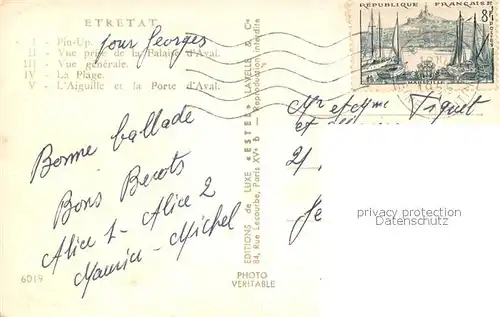 ETRETAT
I - Pin-Up.
II - Vue prise de la Falaise d'Aval.
III - Vue générale.
IV - La Plage.
V - L'Aiguille et la Porte d'Aval.
pour Georges
Bonne ballade
Bons Becots
Alice 1 - Alice 2
Maurice - Michel
6019
PHOTO
VERITABLE
EDITIONS de LUXE « ESTEL » LAVELLE & Cie
84, Rue Lecourbe, Paris XVe — Reproduction interdite
RÉPUBLIQUE FRANÇAISE
8F
POSTES
MARSEILLE
Mr et Mme Piquet
et
21,
privacy protection
Datenschutz